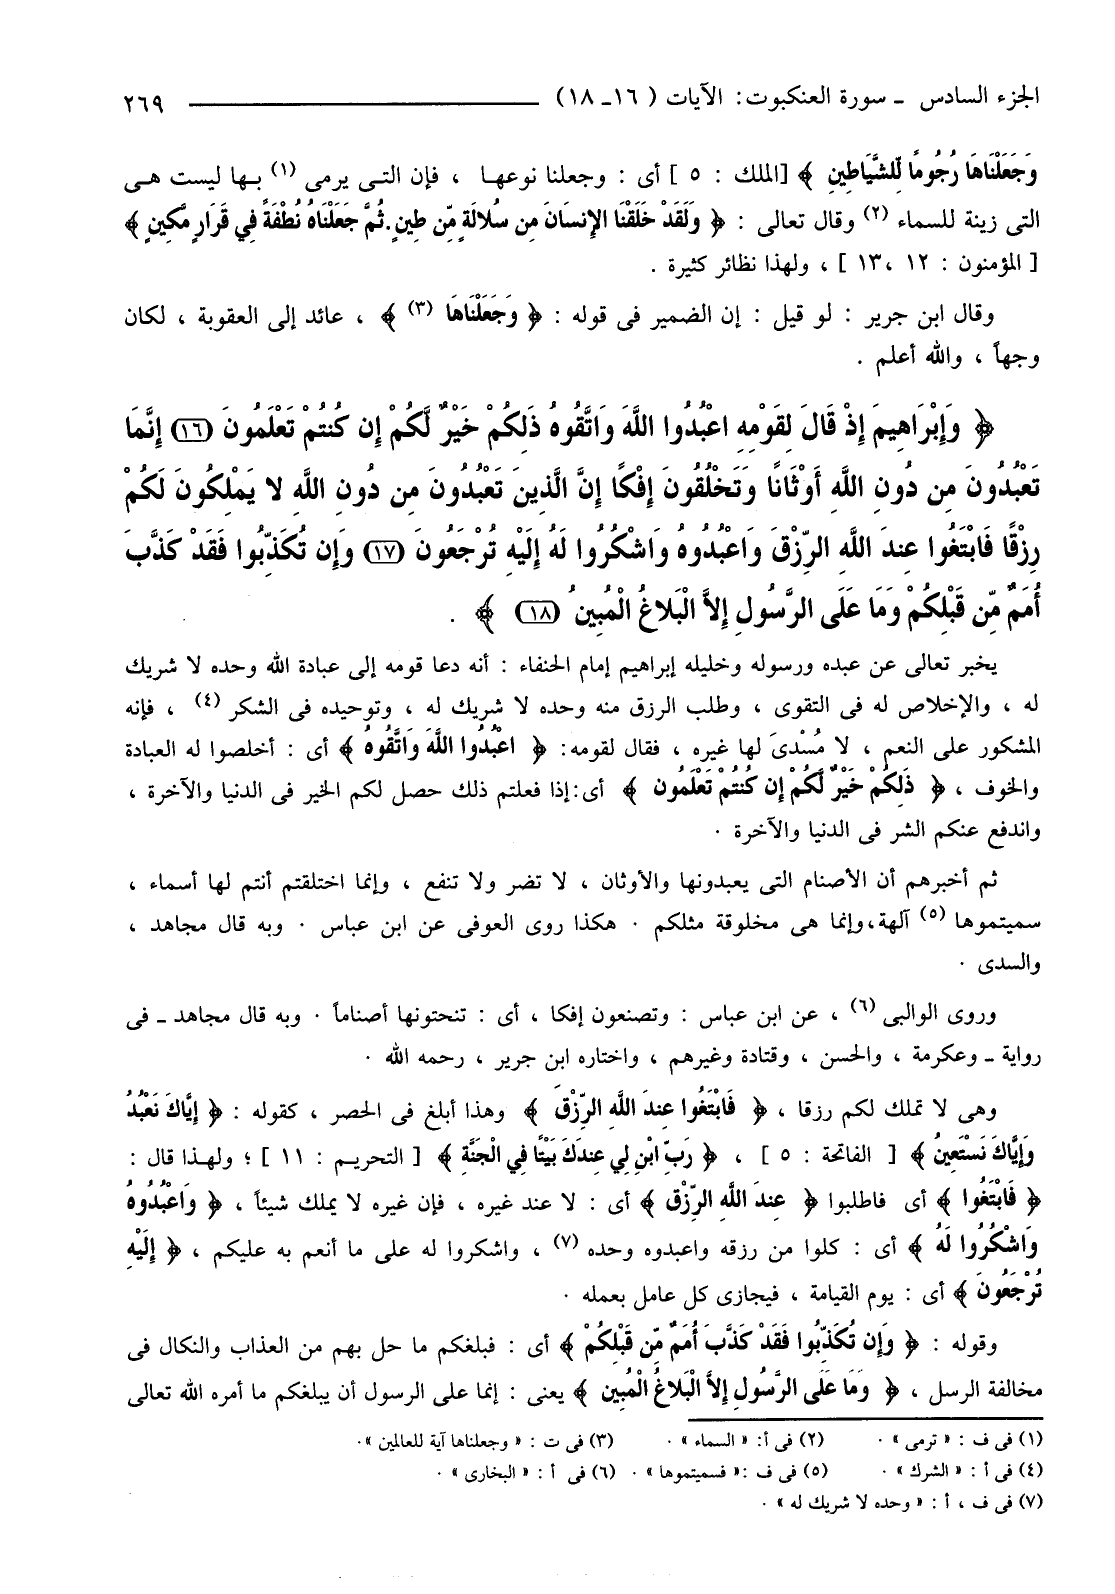 الجزء السادس ـ سورة العنكبوت: الآيات (١٦ـ ١٨) ـــــــ ٢٦٩
وَجَعَلْنَاهَا رُجُومًا لِّلشَّيَاطِينِ ﴾ [الملك : ٥ ] أى : وجعلنا نوعهـا ، فإن التـى يرمى (١) بـها ليست هـى
التى زينة للسماء (٢) وقال تعالى : ﴿ وَلَقَدْ خَلَقْنَا الإِنسَانَ مِن سُلالَةٍ مِّن طِينٍ.ثُمَّ جَعَلْنَاهُ نُطْفَةً فِي قَرَارٍ مَّكِينٍ ﴾
[ المؤمنون : ١٢ ،١٣ ] ، ولهذا نظائر كثيرة .
وقال ابن جرير : لو قيل : إن الضمير فى قوله : ﴿ وَجَعَلْنَاهَا (٣) ﴾ ، عائد إلى العقوبة ، لكان
وجهاً ، والله أعلم .
﴿ وَإِبْرَاهِيمَ إِذْ قَالَ لِقَوْمِهِ اعْبُدُوا اللَّهَ وَاتَّقُوهُ ذَلِكُمْ خَيْرٌ لَّكُمْ إِن كُنتُمْ تَعْلَمُونَ (١٦) إِنَّمَا
تَعْبُدُونَ مِن دُونِ اللَّهِ أَوْثَانًا وَتَخْلُقُونَ إِفْكًا إِنَّ الَّذِينَ تَعْبُدُونَ مِن دُونِ اللَّهِ لا يَمْلِكُونَ لَكُمْ
رِزْقًا فَابْتَغُوا عِندَ اللَّهِ الرِّزْقَ وَاعْبُدُوهُ وَاشْكُرُوا لَهُ إِلَيْهِ تُرْجَعُونَ (١٧) وَإِن تُكَذِّبُوا فَقَدْ كَذَّبَ
أُمَمٌ مِّن قَبْلِكُمْ وَمَا عَلَى الرَّسُولِ إِلاَّ الْبَلاغُ الْمُبِينُ (١٨) ﴾ .
يخبر تعالى عن عبده ورسوله وخليله إبراهيم إمام الحنفاء : أنه دعا قومه إلى عبادة الله وحده لا شريك
له ، والإخلاص له فى التقوى ، وطلب الرزق منه وحده لا شريك له ، وتوحيده فى الشكر (٤) ، فإنه
المشكور على النعم ، لا مُسْدىَ لها غيره ، فقال لقومه: ﴿ اعْبُدُوا اللَّهَ وَاتَّقُوهُ ﴾ أى : أخلصوا له العبادة
والخوف ، ﴿ ذَلِكُمْ خَيْرٌ لَّكُمْ إِن كُنتُمْ تَعْلَمُون ﴾ أى:إذا فعلتم ذلك حصل لكم الخير فى الدنيا والآخرة ،
واندفع عنكم الشر فى الدنيا والآخرة .
ثم أخبرهم أن الأصنام التى يعبدونها والأوثان ، لا تضر ولا تنفع ، وإنما اختلقتم أنتم لها أسماء ،
سميتموها (٥) آلهة،وإنما هى مخلوقة مثلكم . هكذا روى العوفى عن ابن عباس . وبه قال مجاهد ،
والسدى .
وروى الوالبى (٦) ، عن ابن عباس : وتصنعون إفكا ، أى : تنحتونها أصناماً . وبه قال مجاهد ـ فى
رواية ـ وعكرمة ، والحسن ، وقتادة وغيرهم ، واختاره ابن جرير ، رحمه الله .
وهى لا تملك لكم رزقا ، ﴿ فَابْتَغُوا عِندَ اللَّهِ الرِّزْقَ ﴾ وهذا أبلغ فى الحصر ، كقوله : ﴿ إِيَّاكَ نَعْبُدُ
وَإِيَّاكَ نَسْتَعِينُ ﴾ [ الفاتحة : ٥ ] ، ﴿ رَبِّ ابْنِ لِي عِندَكَ بَيْتًا فِي الْجَنَّةِ ﴾ [ التحريم : ١١ ] ؛ ولهذا قال :
﴿ فَابْتَغُوا ﴾ أى فاطلبوا ﴿ عِندَ اللَّهِ الرِّزْقَ ﴾ أى : لا عند غيره ، فإن غيره لا يملك شيئاً ، ﴿ وَاعْبُدُوهُ
وَاشْكُرُوا لَهُ ﴾ أى : كلوا من رزقه واعبدوه وحده (٧) ، واشكروا له على ما أنعم به عليكم ، ﴿ إِلَيْهِ
تُرْجَعُونَ ﴾ أى : يوم القيامة ، فيجازى كل عامل بعمله .
وقوله : ﴿ وَإِن تُكَذِّبُوا فَقَدْ كَذَّبَ أُمَمٌ مِّن قَبْلِكُمْ ﴾ أى : فبلغكم ما حل بهم من العذاب والنكال فى
مخالفة الرسل ، ﴿ وَمَا عَلَى الرَّسُولِ إِلاَّ الْبَلاغُ الْمُبِين ﴾ يعنى : إنما على الرسول أن يبلغكم ما أمره الله تعالى
(١) فى ف : « ترمى » . (٢) فى أ: « السماء » . (٣) فى ت : « وجعلناها آية للعالمين ».
(٤) فى أ : « الشرك » . (٥) فى ف :« فسميتموها » . (٦) فى أ : « البخارى » .
(٧) فى ف ، أ : « وحده لا شريك له » .